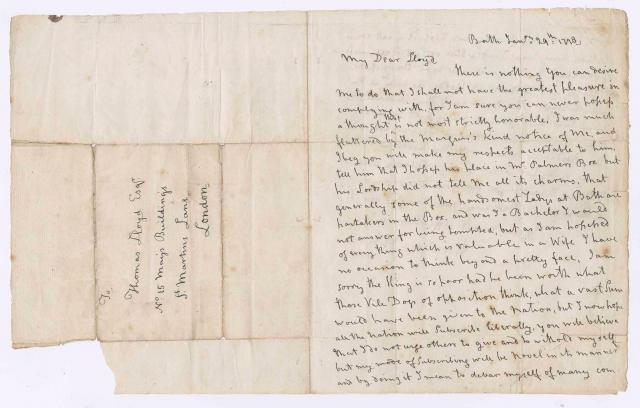 Bath Jany 29th 1798
My Dear Lloyd
There is nothing You can desire
me to do that I shall not have the greatest pleasure in
complying with, for I am sure you can never posess
a thought that is not most strictly honorable, I was much
flattered by the Marquis's kind notice of Me, and
I beg you will make my respects acceptable to him,
tell him that I posess his place in Mr Palmers Box but
his Lordship did not tell me all its charms, that
generally some of the handsomest Ladys at Bath are
partakers in the Box, and was I a Bachelor I would
not answer for being tempted, but as I am posesed
of every thing which is valuable in a Wife I have
no occasion to think beyond a pretty face, I am
sorry the King is so poor had he been worth what
those Vile Dogs of opposition think, what a vast Sum
would have been given to the Nation, but I now hope
all the Nation will Subscribe liberally, you will believe
that I do not urge others to give and to withold myself
but my mode of Subscribing will be Novel in its manner
and by doing it I mean to debar myself of many com
To
Thomas Lloyd Esqr
No 15 Mays Buildings
St Martins Lane
London